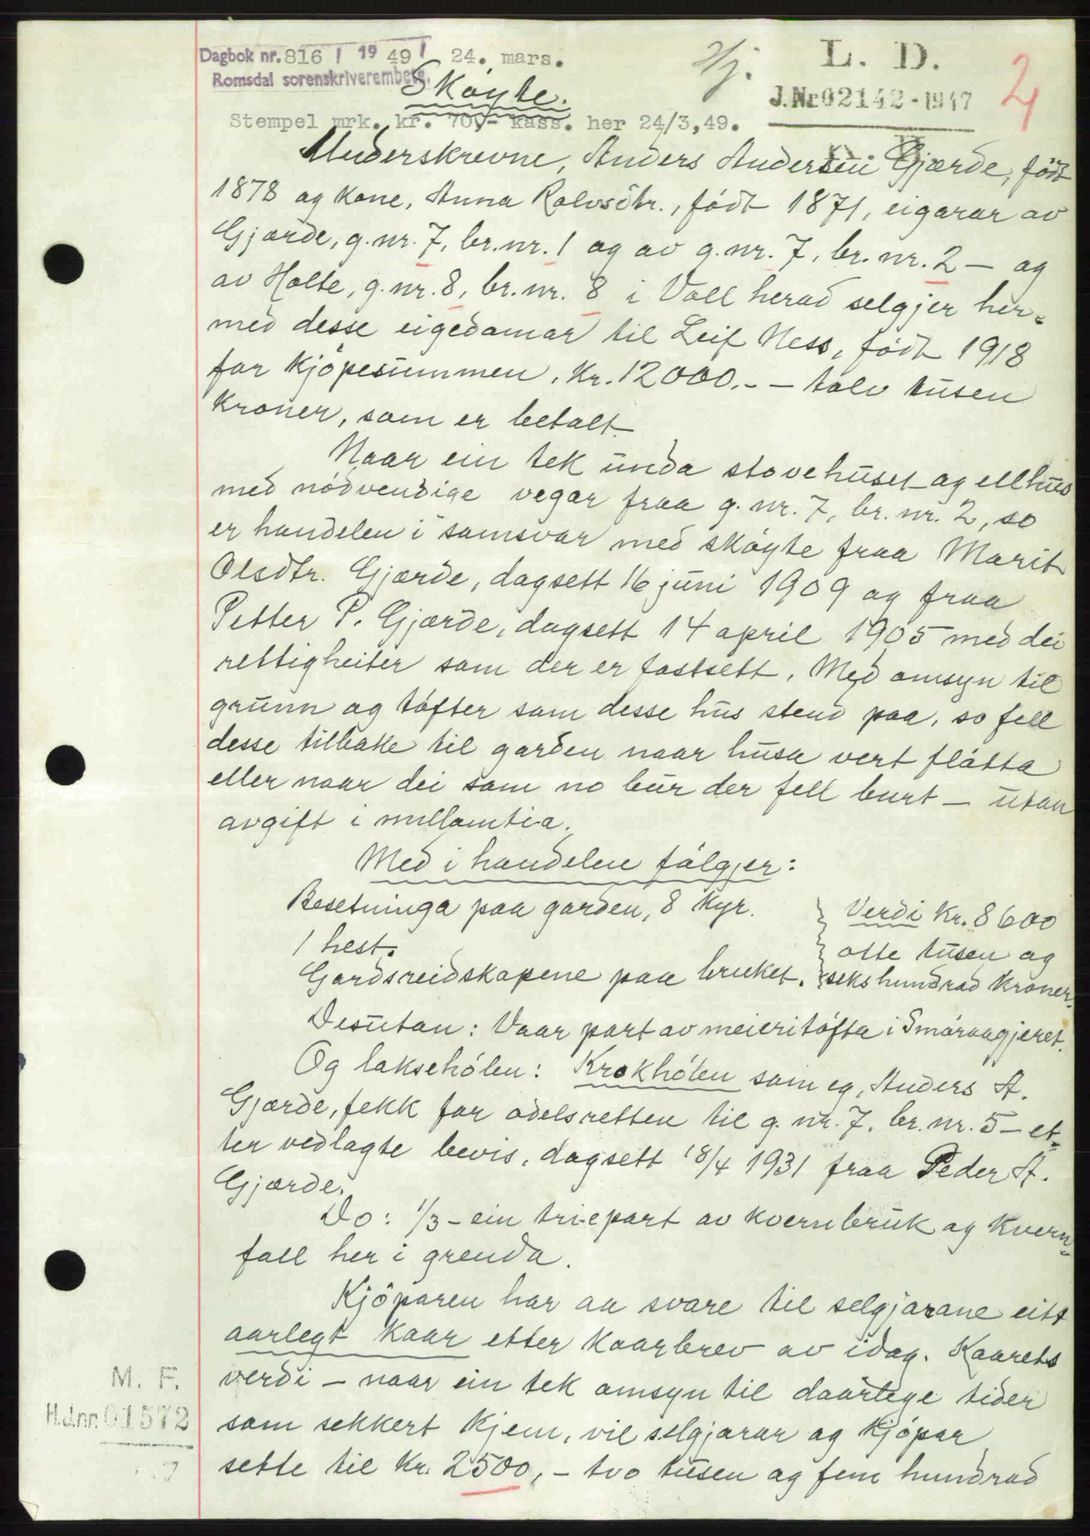 Dagbok nr. 816 / 19 49 / 24. mars.
Romsdal sorenskriverembete.
Skøyte.
Hj.
L. D.
J.Nr 02142 - 1947
2
Stempel mrk. kr. 70,- kass. her 24/3,49.
Underskrevne, Anders Andersen Gjærde, født
1878 og kone, Anna Rolvsdtr., født 1871, eigarar av
Gjærde, g.nr. 7, br.nr. 1 og av g.nr. 7, br. nr. 2 — og
av Holte, g.nr. 8, br.nr. 8 i Voll herad selgjer her-
med desse eigedomar til Leif Ness, født 1918
for kjøpesummen, kr. 12000.- — tolv tusen
kroner, som er betalt.
Naar ein tek unda stovehuset og ellhus
med nødvendige vegar fraa g. nr. 7, br. nr. 2, so
er handelen i samsvar med skøyte fraa Marit
Olsdtr. Gjærde, dagsett 16 juni 1909 og fraa
Petter P. Gjærde, dagsett 14 april 1905 med dei
rettigheiter som der er fastsett. Med omsyn til
grunn og tófter som desse hus stend paa, so fell
desse tilbake til garden naar husa vert fløtta
eller naar dei som no bur der fell burt — utan
avgift i millomtia.
Med i handelen følgjer:
Besetninga paa garden, 8 kyr.
1 hest.
Gardsreidskapene paa bruket.
Verdi kr. 8600
otte tusen og
sekshundrad kroner.
Desutan: Vaar part av meieritófta i Smøraagjeret.
Og laksehølen: Krokhølen som eg, Anders A.
Gjærde, fekk for odelsretten til g. nr. 7. br. nr. 5 — et-
ter vedlagte bevis, dagsett 18/4 1931 fraa Peder A.
Gjærde.
Do: 1/3 — ein triepart av kvernbruk og kvern-
fall her i grenda.
Kjøparen har aa svare til selgjarane eitt
aarlegt kaar etter kaarbrev av idag. Kaarets
verdi — naar ein tek omsyn til daarlege tider
som sekkert kjem, vil selgjarar og kjøpar
sette til kr. 2500,- tvo tusen og fem hundrad
M. F.
H.J.nr. 01572